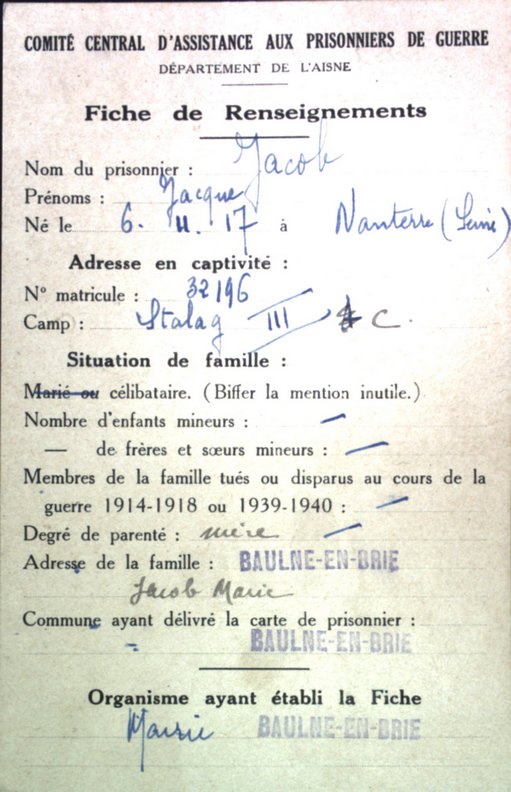 COMITÉ CENTRAL D'ASSISTANCE AUX PRISONNIERS DE GUERRE
DÉPARTEMENT DE L'AISNE
Fiche de Renseignements
Nom du prisonnier : Jacob
Prénoms : Jacque
Né le 6. 11. 17 à Nanterre (Seine)
Adresse en captivité :
N° matricule : 32196
Camp : Stalag III C.
Situation de famille :
Marié ou célibataire. (Biffer la mention inutile.)
Nombre d'enfants mineurs : —
— de frères et sœurs mineurs : —
Membres de la famille tués ou disparus au cours de la
guerre 1914-1918 ou 1939-1940 : —
Degré de parenté : mère —
Adresse de la famille : BAULNE-EN-BRIE
Jacob Marie
Commune ayant délivré la carte de prisonnier :
BAULNE-EN-BRIE
Organisme ayant établi la Fiche
Mairie BAULNE-EN-BRIE